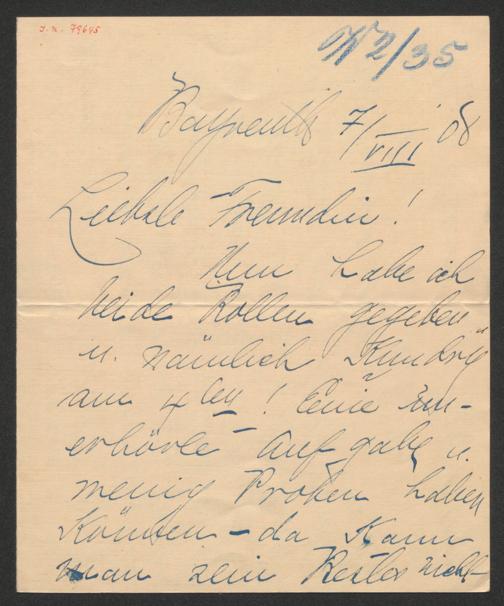 J.N. 79645
W2/35
Bayreuth 7/VIII 08
Liebste Freundin!
Nun habe ich
beide Rollen gegeben
u. nämlich "Kundry"
am 4ten! Eine un-
erhörte Aufgabe u.
wenig Proben haben
können – da kann
man sein Bestes nicht